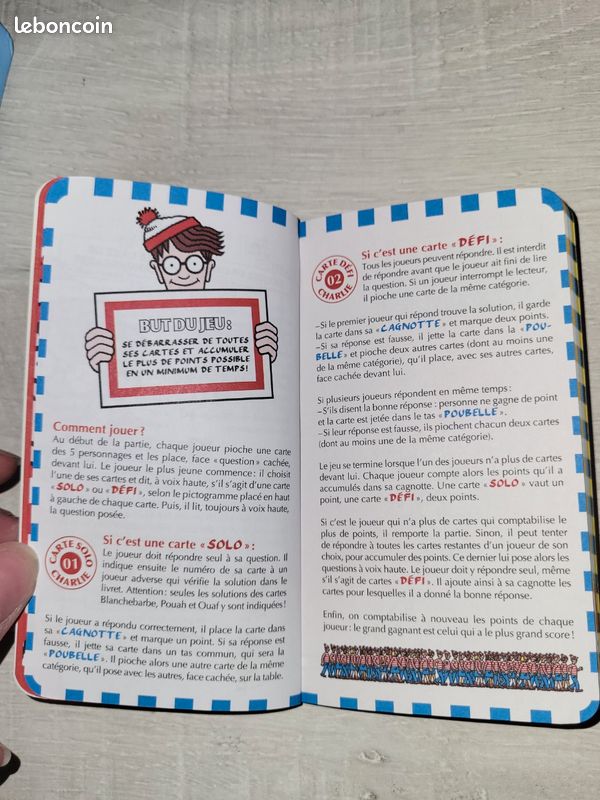 leboncoin
BUT DU JEU :
SE DÉBARRASSER DE TOUTES
SES CARTES ET ACCUMULER
LE PLUS DE POINTS POSSIBLE
EN UN MINIMUM DE TEMPS!
Comment jouer ?
Au début de la partie, chaque joueur pioche une carte
des 5 personnages et les place, face « question » cachée,
devant lui. Le joueur le plus jeune commence : il choisit
l'une de ses cartes et dit, à voix haute, s'il s'agit d'une carte
« SOLO » ou « DÉFI », selon le pictogramme placé en haut
à gauche de chaque carte. Puis, il lit, toujours à voix haute,
la question posée.
CARTE SOLO
01
CHARLIE
Si c'est une carte « SOLO » :
Le joueur doit répondre seul à sa question. Il
indique ensuite le numéro de sa carte à un
joueur adverse qui vérifie la solution dans le
livret. Attention : seules les solutions des cartes
Blanchebarbe, Pouah et Ouaf y sont indiquées !
Si le joueur a répondu correctement, il place la carte dans
sa « CAGNOTTE » et marque un point. Si sa réponse est
fausse, il jette sa carte dans un tas commun, qui sera la
« POUBELLE ». Il pioche alors une autre carte de la même
catégorie, qu'il pose avec les autres, face cachée, sur la table.
CARTE DÉFI
02
CHARLIE
Si c'est une carte « DÉFI » :
Tous les joueurs peuvent répondre. Il est interdit
de répondre avant que le joueur ait fini de lire
la question. Si un joueur interrompt le lecteur,
il pioche une carte de la même catégorie.
–Si le premier joueur qui répond trouve la solution, il garde
la carte dans sa « CAGNOTTE » et marque deux points.
–Si sa réponse est fausse, il jette la carte dans la « POU-
BELLE » et pioche deux autres cartes (dont au moins une
de la même catégorie), qu'il place, avec ses autres cartes,
face cachée devant lui.
Si plusieurs joueurs répondent en même temps :
–S'ils disent la bonne réponse : personne ne gagne de point
et la carte est jetée dans le tas « POUBELLE ».
–Si leur réponse est fausse, ils piochent chacun deux cartes
(dont au moins une de la même catégorie).
Le jeu se termine lorsque l'un des joueurs n'a plus de carte
devant lui. Chaque joueur compte alors les points qu'il a
accumulés dans sa cagnotte. Une carte « SOLO » vaut un
point, une carte « DÉFI », deux points.
Si c'est le joueur qui n'a plus de cartes qui comptabilise le
plus de points, il remporte la partie. Sinon, il peut tenter
de répondre à toutes les cartes restantes d'un joueur de son
choix, pour accumuler des points. Ce dernier lui pose alors les
questions à voix haute. Le joueur doit y répondre seul, même
s'il s'agit de cartes « DÉFI ». Il ajoute ainsi à sa cagnotte les
cartes pour lesquelles il a donné la bonne réponse.
Enfin, on comptabilise à nouveau les points de chaque
joueur : le grand gagnant est celui qui a le plus grand score !